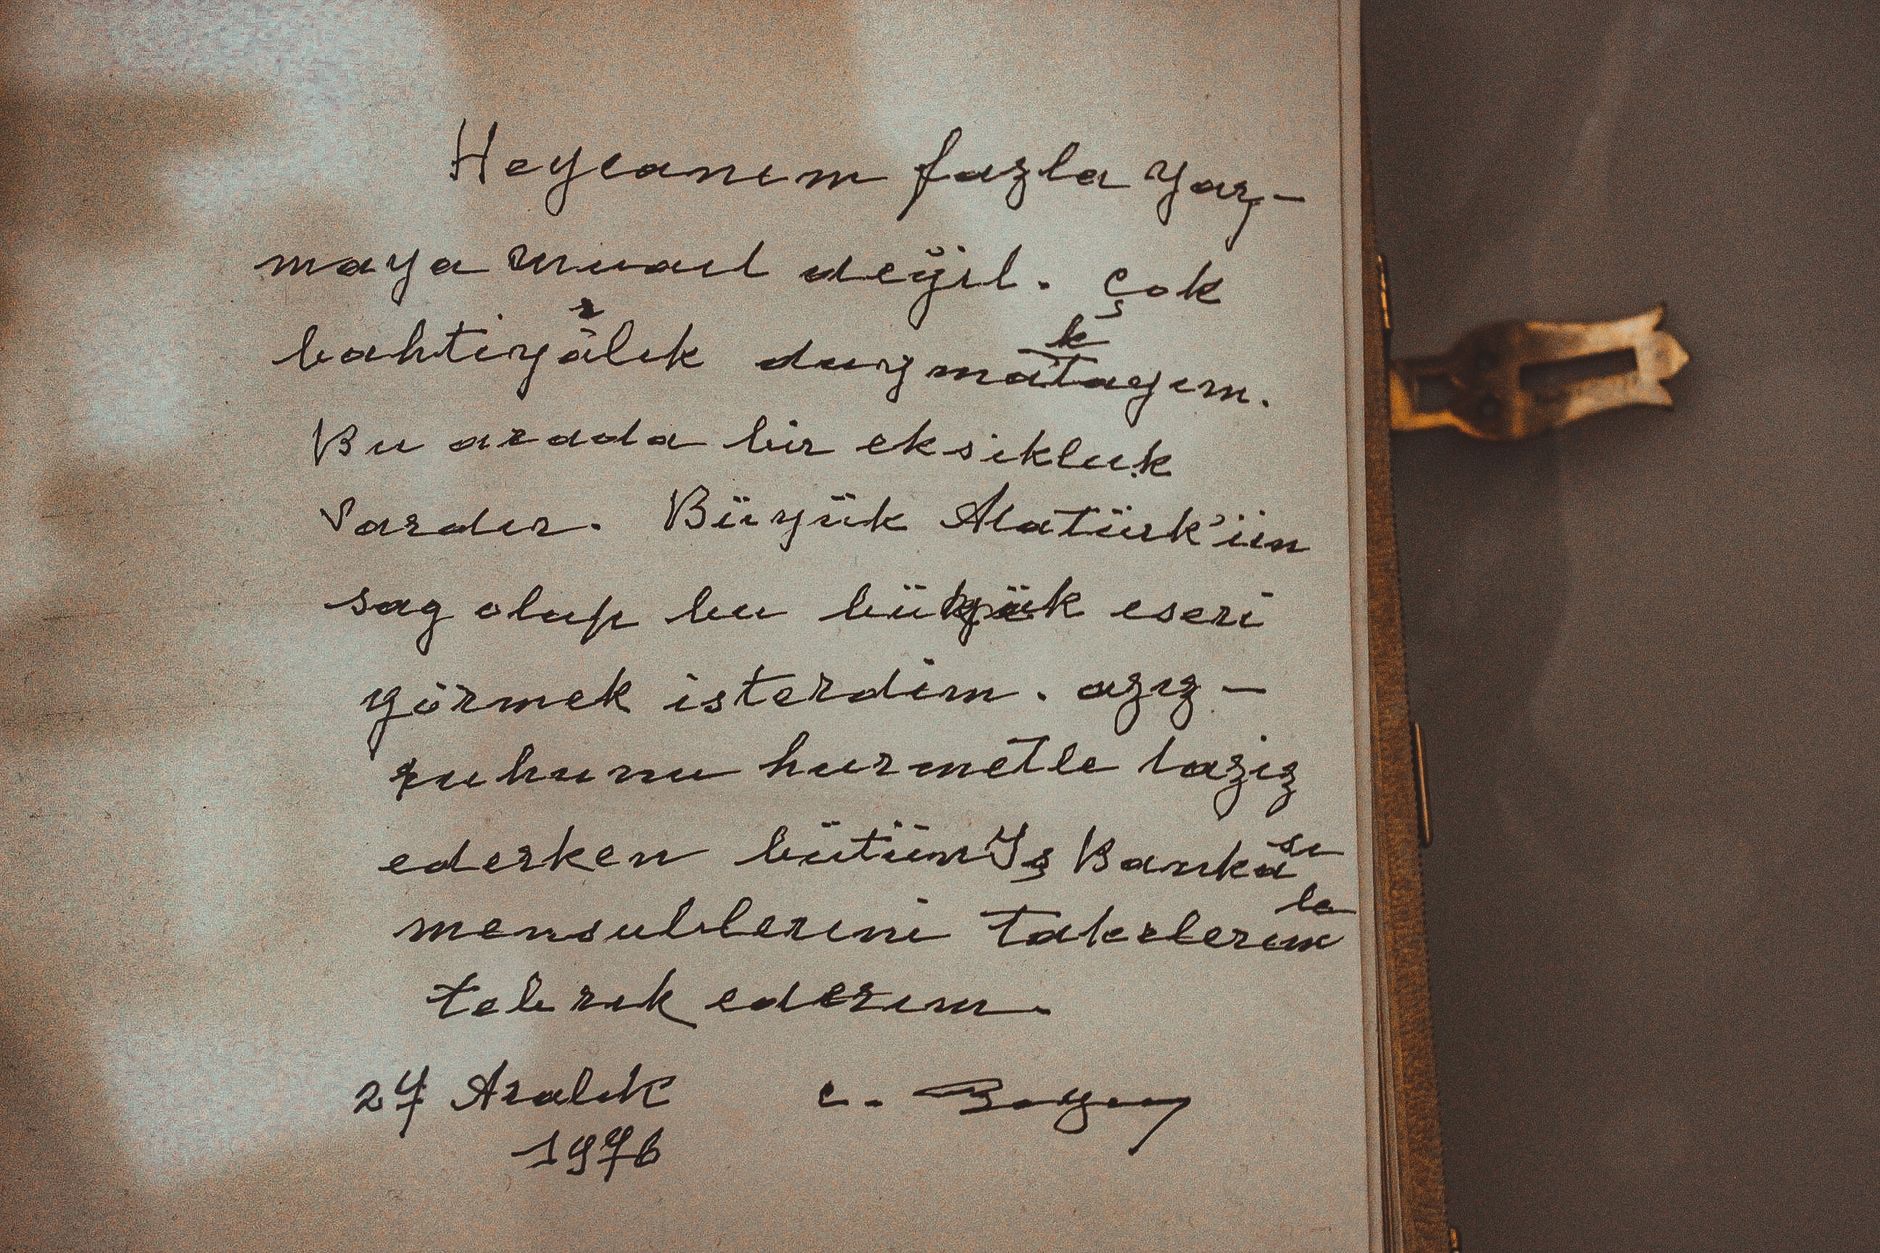 Heycanım fazla yaz-
maya muail değil. Çok
bahtiyarlık duymaktayım.
Bu arada bir eksikluk
vardır. Büyük Atatürk'ün
sag olup bu büyük eseri
görmek isterdim. aziz-
ruhunu hurmetle taziz
ederken bütün İş Bankası
mensublerini takdlerimle
tebrik ederım.
27 Aralık C. Bayar
1976